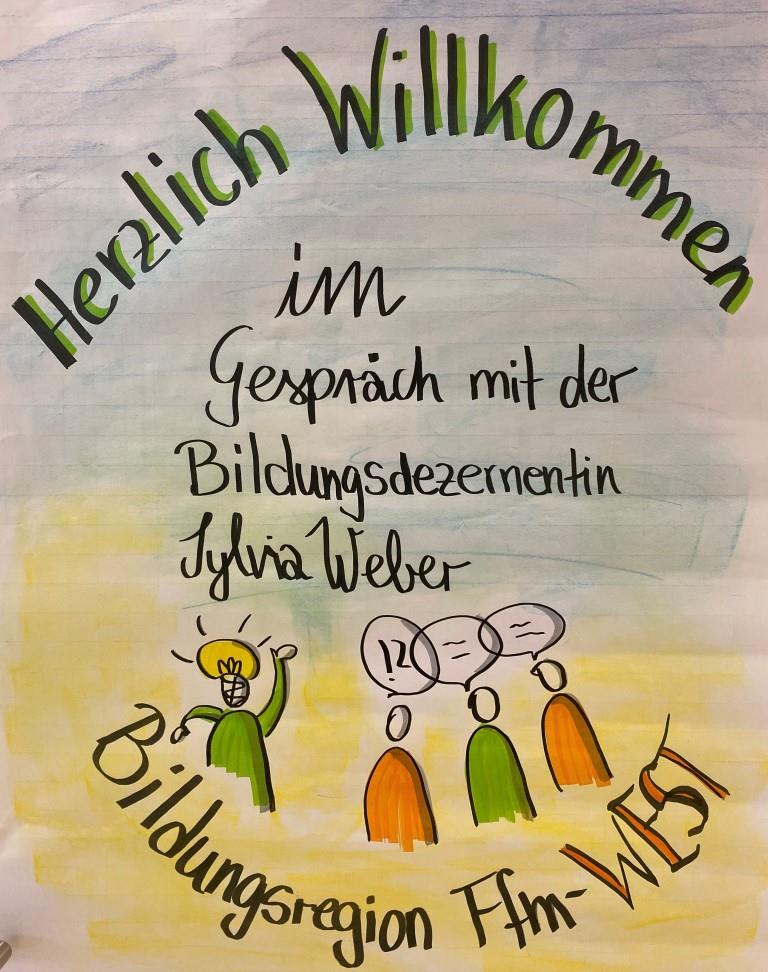 Herzlich Willkommen
im
Gespräch mit der
Bildungsdezernentin
Sylvia Weber
!?
Bildungsregion Ffm-WEST